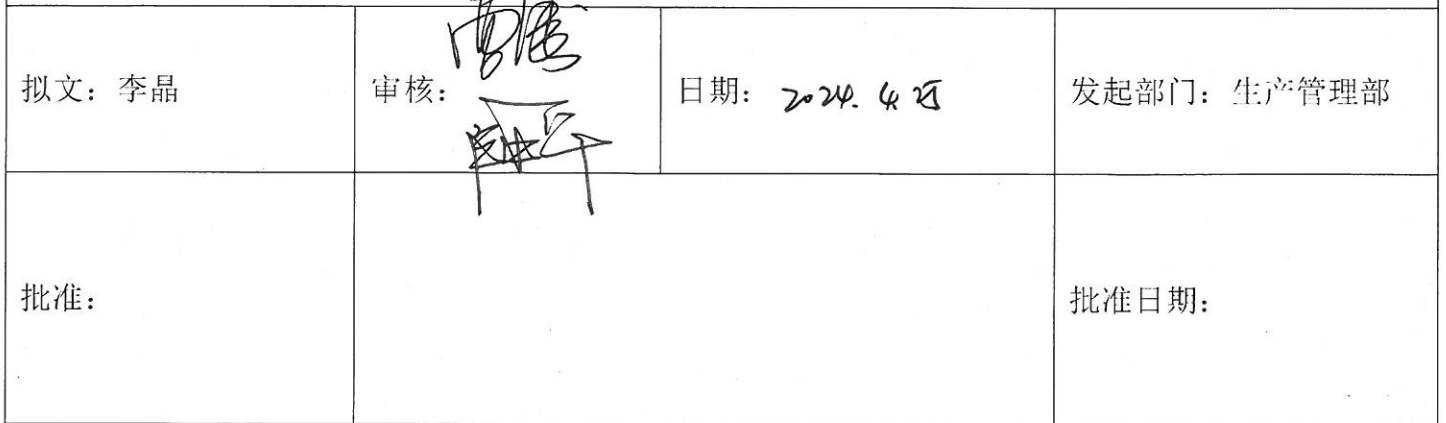 拟文：李晶
审核：
日期：2024.4.25
发起部门：生产管理部
批准：
批准日期：